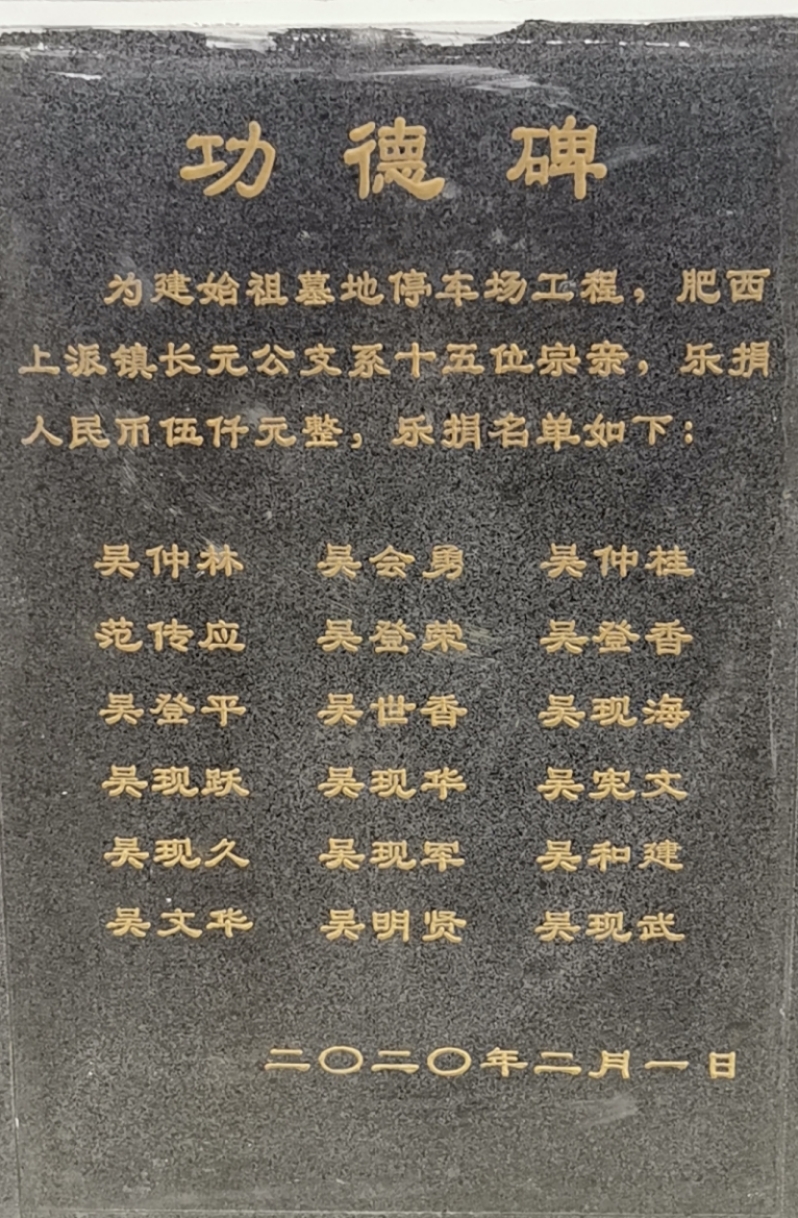 功德碑
为建始祖墓地停车场工程，肥西
上派镇长元公支系十五位宗亲，乐捐
人民币伍仟元整，乐捐名单如下：
吴仲林 吴会勇 吴仲桂
范传应 吴登荣 吴登香
吴登平 吴世香 吴现海
吴现跃 吴现华 吴宪文
吴现久 吴现军 吴和建
吴文华 吴明贤 吴现武
二〇二〇年二月一日